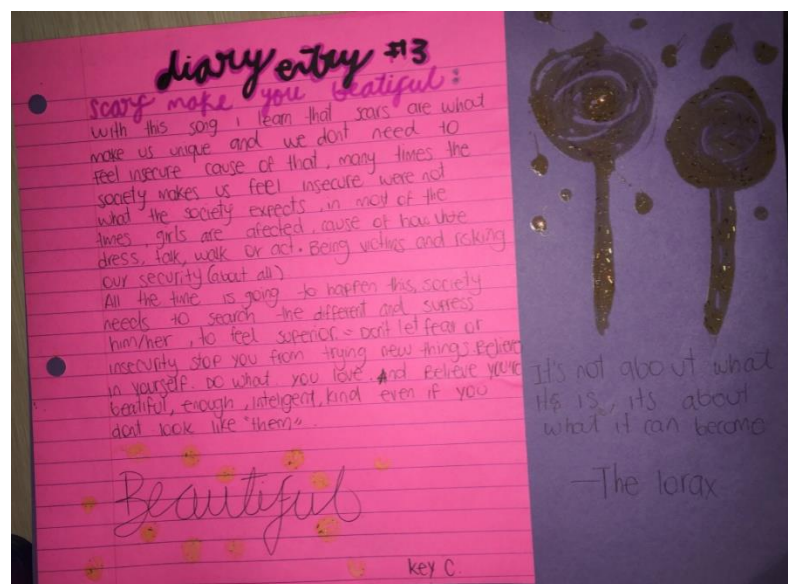 diary entry #13
scars make you beatiful:
with this song i learn that scars are what
make us unique and we dont need to
feel insecure cause of that, many times the
society makes us feel insecure were not
what the society expects, in most of the
times, girls are afected, cause of how
dress, talk, walk or act. Being victims and risking
our security (about all)
All the time is going to happen this, society
needs to search the different and supress
him/her, to feel superior. Dont let fear or
insecurity stop you from trying new things. Believe
in yourself. Do what you love. And Believe you're
beatiful, enough, inteligent, kind even if you
dont look like "them".
Beautiful
key C.
It's not about what
it is, its about
what it can become
—The lorax